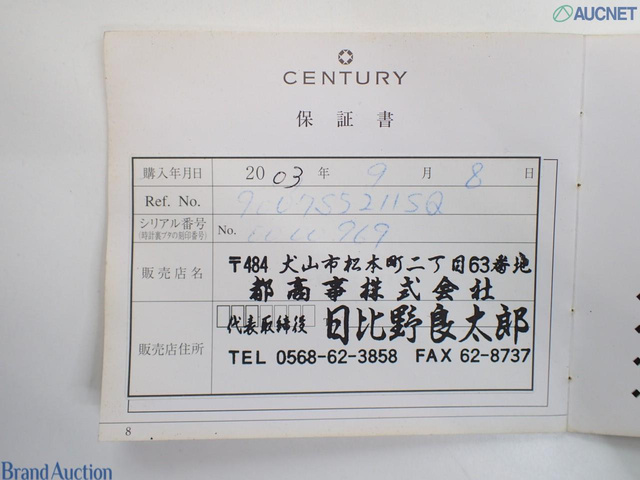 AUCNET
CENTURY
保証書
購入年月日 2003年 9月 8日
Ref. No.
シリアル番号 No.
(時計裏ブタの刻印番号)
販売店名
〒484 犬山市松本町二丁目63番地
都商事株式会社
代表取締役 日比野良太郎
販売店住所
TEL 0568-62-3858 FAX 62-8737
8
Brand Auction